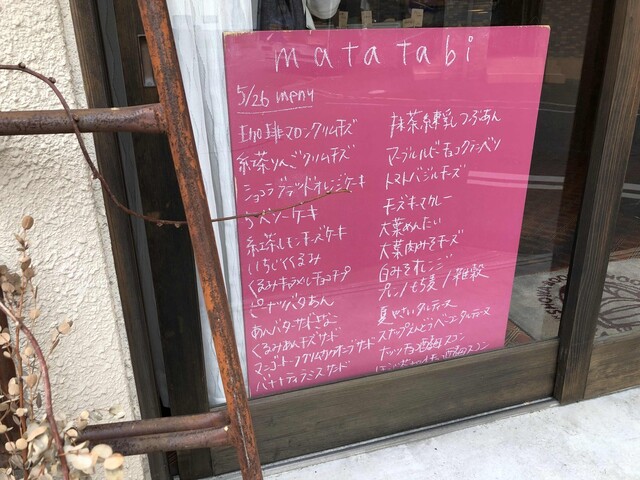 matatabi
5/26 menu
珈琲マロンクリームチーズ
紅茶りんごクリームチーズ
ショコラブラッドオレンジケーキ
ケーキ
紅茶レモンチーズケーキ
いちじくくるみ
くるみキャラメルチョコチップ
ピーナッツバターあん
あんバターサンドきなこ
くるみあんチーズサンド
マンゴートロ クリーム サンド
バナナティラミスサンド
抹茶練乳つぶあん
マーブルルビーチョコクランベリー
トマトバジルチーズ
チーズキーマカレー
大葉めんたい
大葉肉みそチーズ
白みそオレンジ
プレーン/もち麦/雑穀
夏やさいタルティーヌ
スナップえんどうベーコンタルティーヌ
ナッツチョコ酒粕スコーン
酒粕スコーン